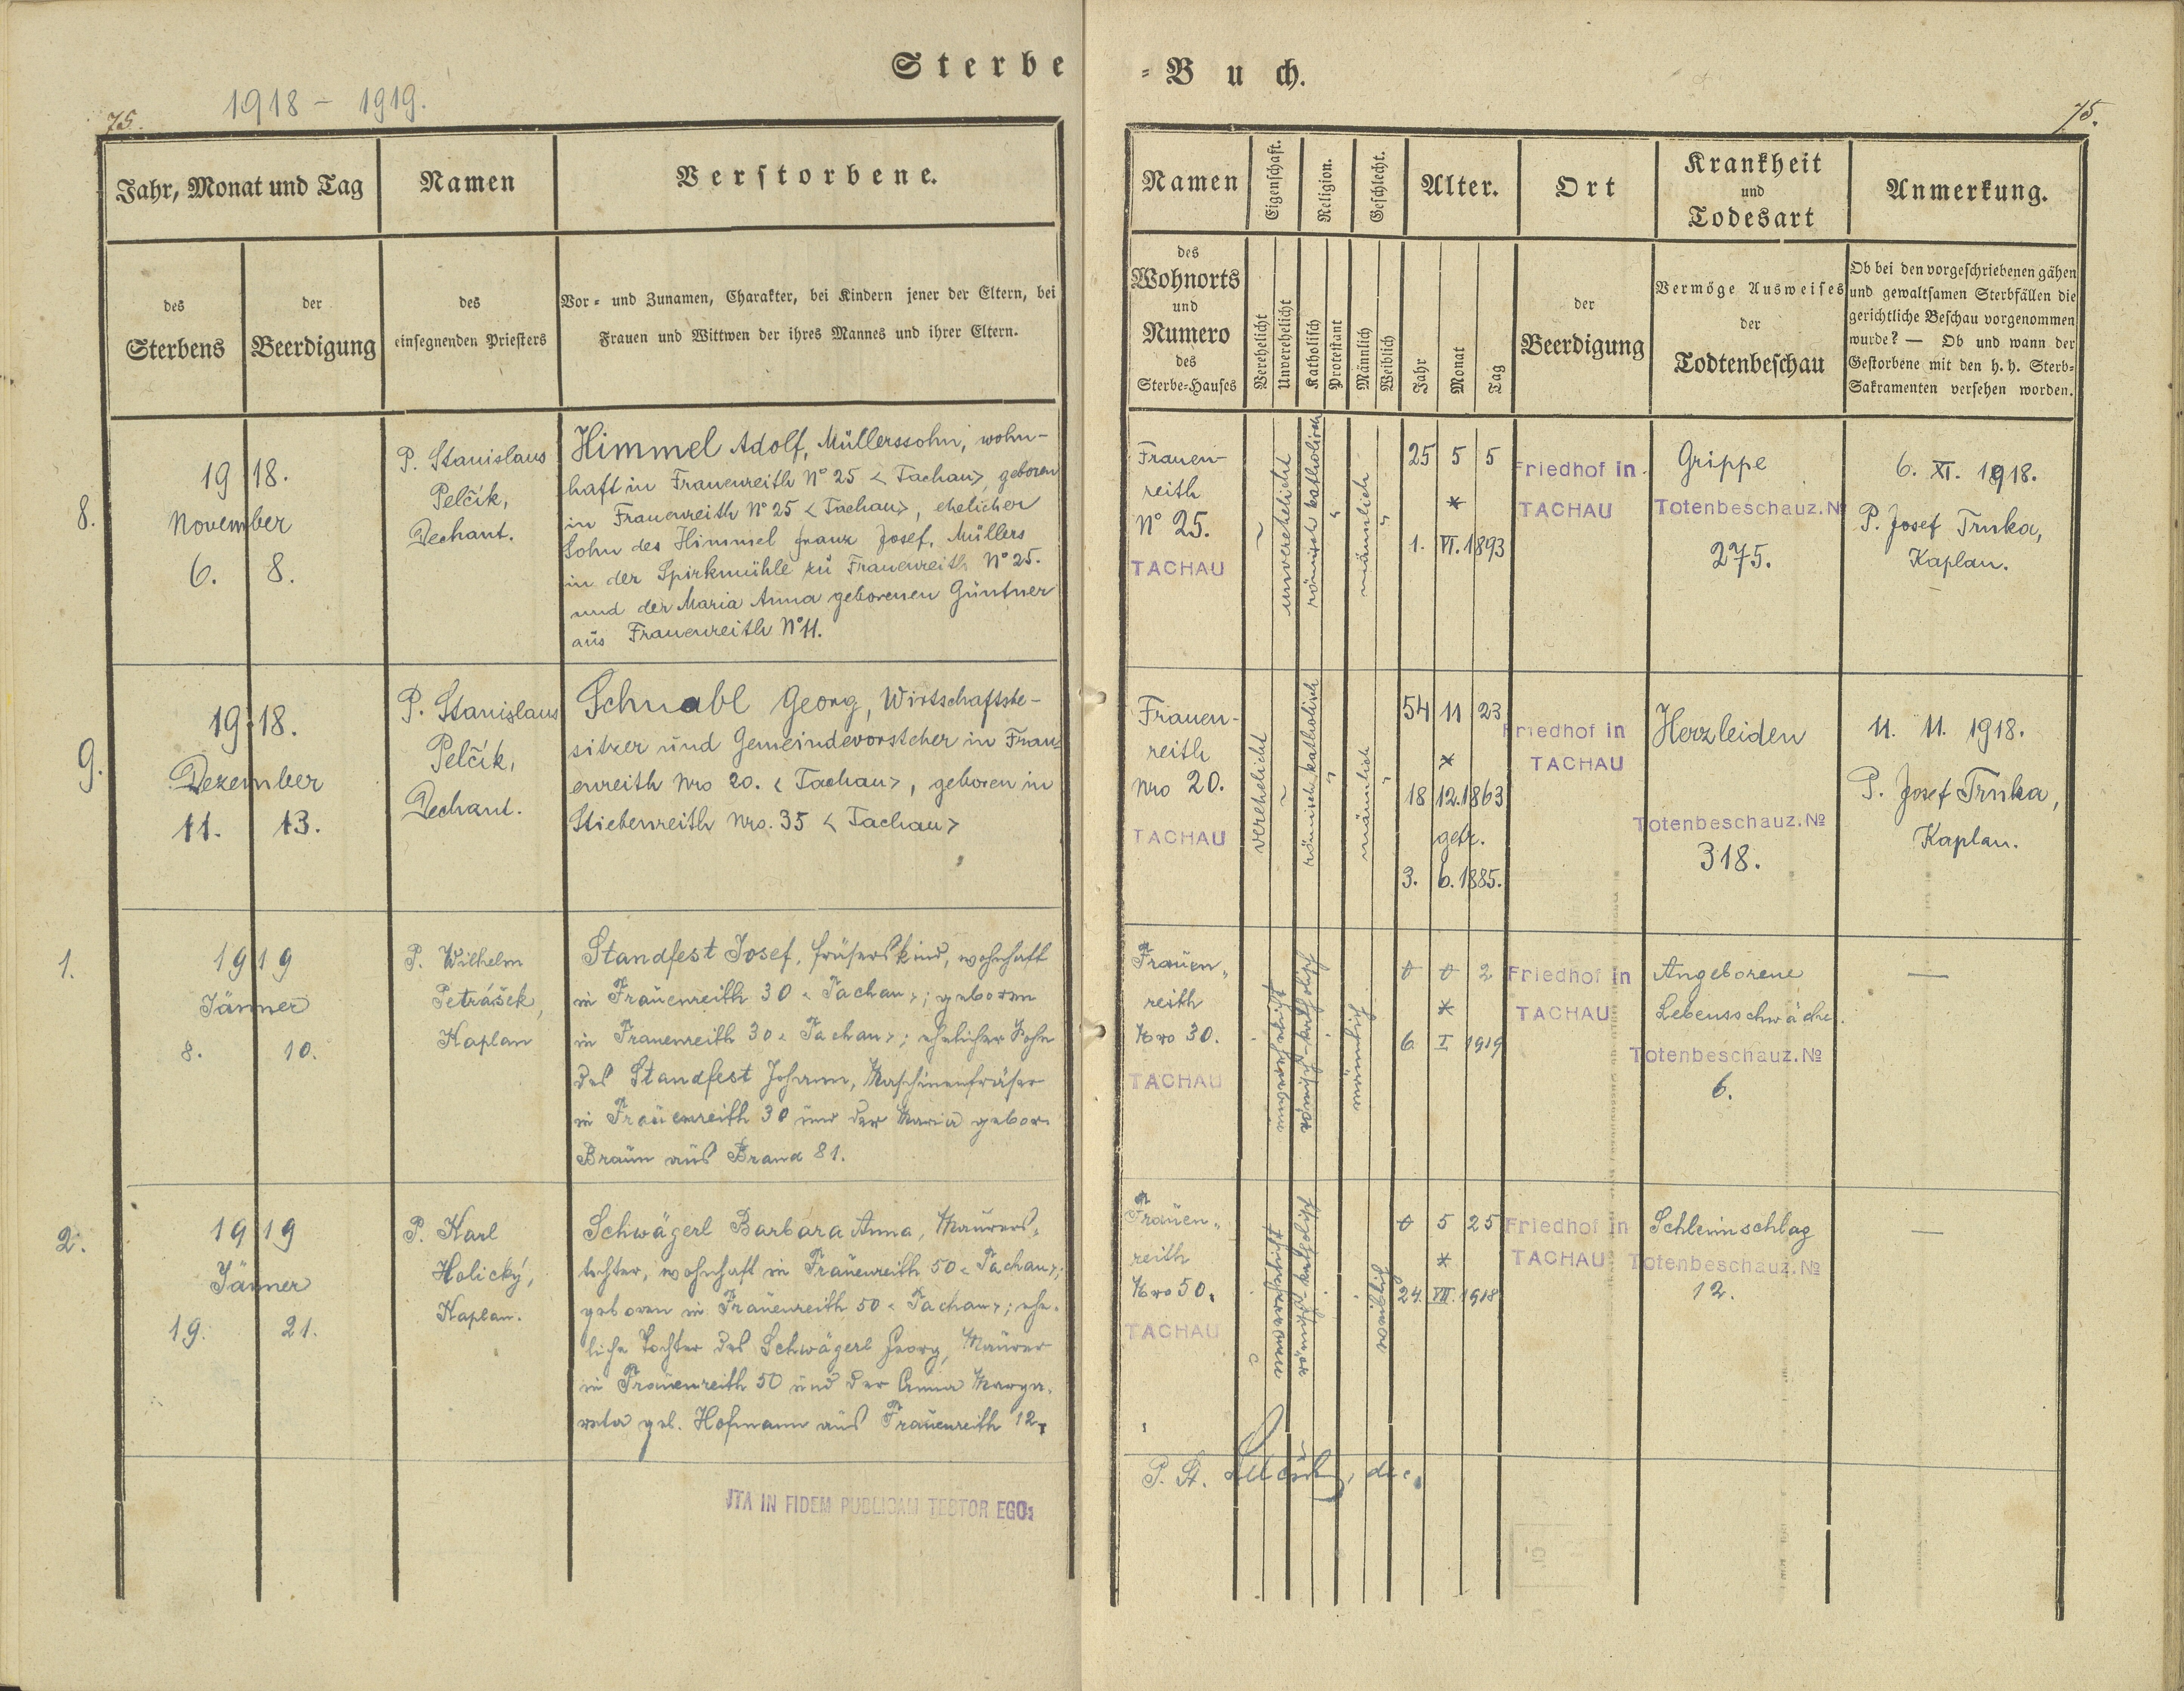 Sterbe-Buch.
1918 - 1919.
75.
75.
Jahr, Monat und Tag
Namen
Verstorbene.
des Sterbens
der Beerdigung
des einsegnenden Priesters
Vor- und Zunamen, Charakter, bei Kindern jener der Eltern, bei
Frauen und Wittwen der ihres Mannes und ihrer Eltern.
Namen
Eigenschaft.
Religion.
Geschlecht.
Alter.
Ort
Krankheit
und
Todesart
Anmerkung.
des
Wohnorts
und
Numero
des
Sterbe-Hauses
Verehelicht
Unverehelicht
Katholisch
Protestant
Männlich
Weiblich
Jahr
Monat
Tag
der
Beerdigung
Vermöge Ausweises
der
Todtenbeschau
Ob bei den vorgeschriebenen gähen
und gewaltsamen Sterbfällen die
gerichtliche Beschau vorgenommen
wurde? — Ob und wann der
Gestorbene mit den h. h. Sterb-
Sakramenten versehen worden.
8.
1918.
November
6. 8.
P. Stanislaus
Pelčík,
Dechant.
Himmel Adolf, Müllerssohn, wohn-
haft in Frauenreith N° 25 < Tachau>, geboren
in Frauenreith N° 25 < Tachau>, ehelicher
Sohn des Himmel Franz Josef, Müllers
in der Spirkmühle zu Frauenreith N° 25.
und der Maria Anna geborenen Güntner
aus Frauenreith N° 11.
Frauen-
reith
N° 25.
TACHAU
unverehelicht
römisch katholisch
männlich
25 5 5
*
1. VI. 1893
Friedhof in
TACHAU
Grippe
Totenbeschauz. №
275.
6. XI. 1918.
P. Josef Trnka,
Kaplan.
9.
1918.
Dezember
11. 13.
P. Stanislaus
Pelčík,
Dechant.
Schnabl Georg, Wirtschaftsbe-
sitzer und Gemeindevorsteher in Frau-
enreith Nro 20. < Tachau>, geboren in
Stiebenreith Nro. 35 < Tachau>
Frauen-
reith
Nro 20.
TACHAU
verehelicht
römisch katholisch
männlich
54 11 23
*
18 12. 1863
getr.
3. 6. 1885.
Friedhof in
TACHAU
Herzleiden
Totenbeschauz. №
318.
11. 11. 1918.
P. Josef Trnka,
Kaplan.
1.
1919
Jänner
8. 10.
P. Wilhelm
Petrášek,
Kaplan
Standfest Josef, Fräserskind, wohnhaft
in Frauenreith 30 < Tachau>; geboren
in Frauenreith 30 < Tachau>; ehelicher Sohn
des Standfest Johann, Maschinenfräser
in Frauenreith 30 und der Maria gebor.
Braun aus Brand 81.
Frauen-
reith
Nro 30.
TACHAU
unverehelicht
römisch-katholisch
männlich
0 0 2
*
6 I 1919
Friedhof in
TACHAU
Angeborene
Lebensschwäche.
Totenbeschauz. №
6.
—
2.
1919
Jänner
19. 21.
P. Karl
Holický,
Kaplan.
Schwägerl Barbara Anna, Maurers-
tochter, wohnhaft in Frauenreith 50 < Tachau>;
geboren in Frauenreith 50 < Tachau>; ehe-
liche Tochter des Schwägerl Georg, Maurer
in Frauenreith 50 und der Anna Marga-
reta geb. Hofmann aus Frauenreith 12.
Frauen-
reith
Nro 50.
TACHAU
unverehelicht
römisch-katholisch
weiblich
0 5 25
*
24. VII. 1918
Friedhof in
TACHAU
Schleimschlag
Totenbeschauz. №
12.
—
ITA IN FIDEM PUBLICAM TESTOR EGO:
P. St.